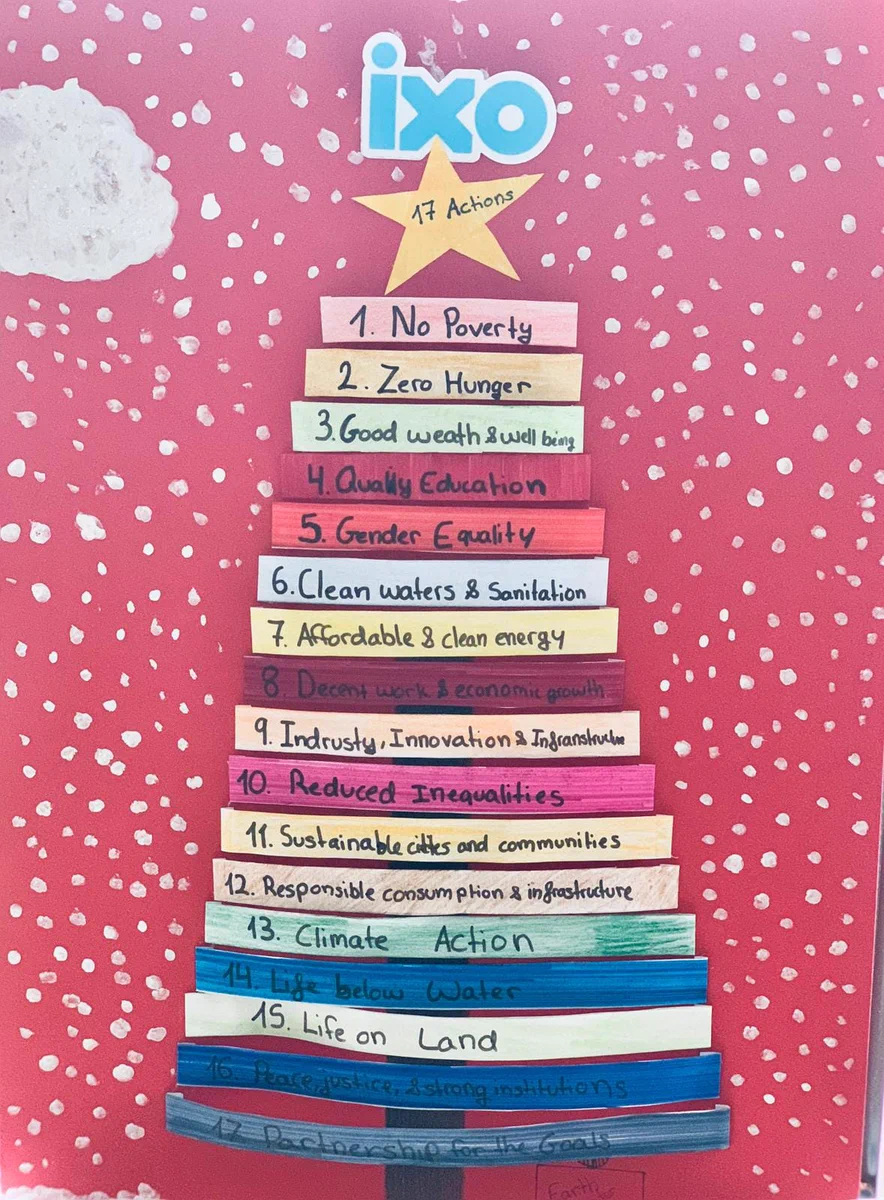 ixo
17 Actions
1. No Poverty
2. Zero Hunger
3. Good weath & well being
4. Quality Education
5. Gender Equality
6. Clean waters & Sanitation
7. Affordable & clean energy
8. Decent work & economic growth
9. Indrusty, Innovation & Infranstructure
10. Reduced Inequalities
11. Sustainable cities and communities
12. Responsible consumption & infrastructure
13. Climate Action
14. Life below Water
15. Life on Land
16. Peace, justice, & strong institutions
17. Partnership for the Goals
Earth